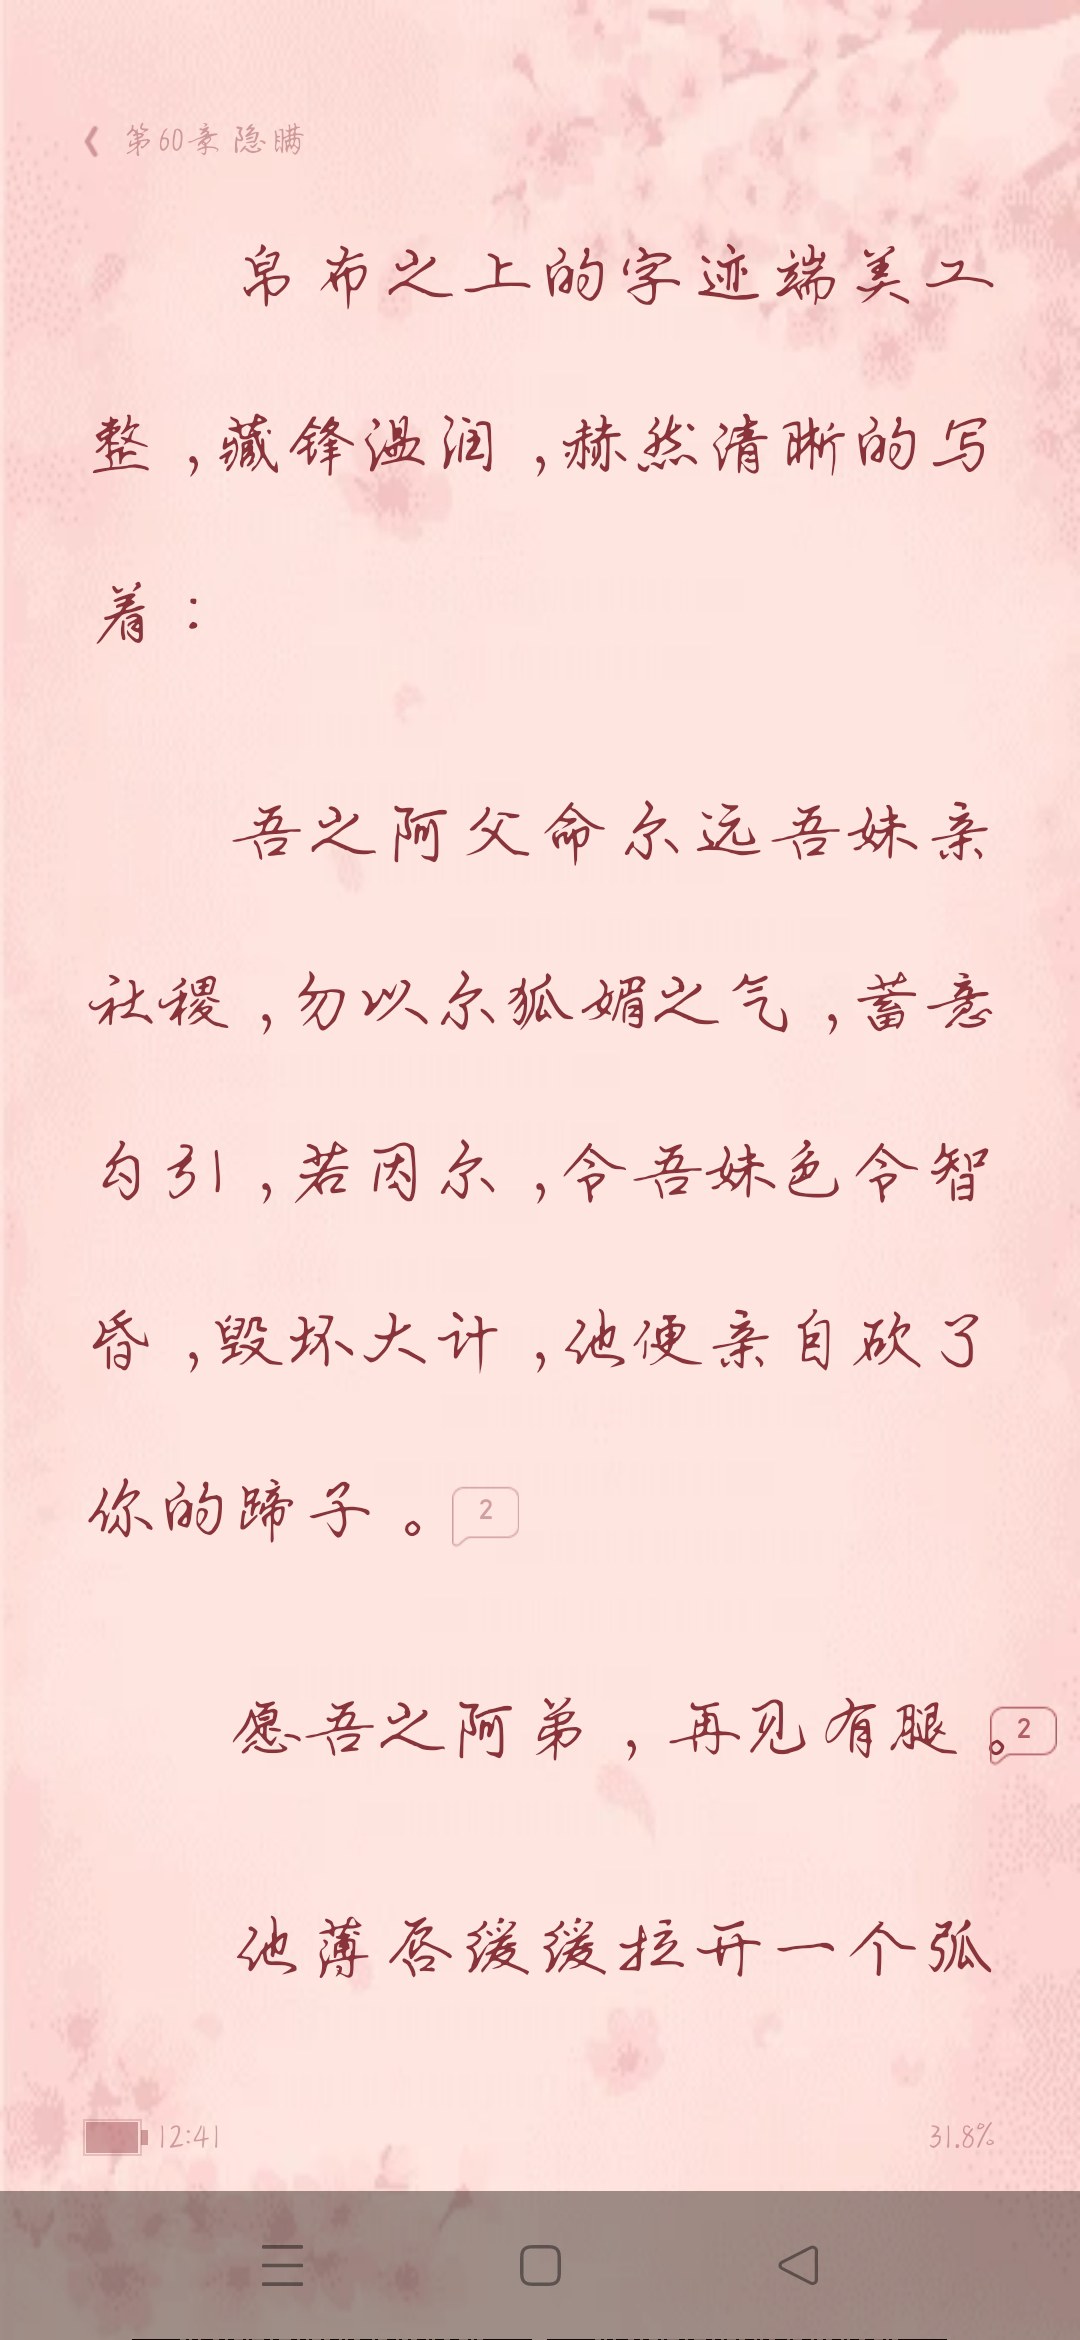 第60章 隐瞒
帛布之上的字迹端美工
整，藏锋温润，赫然清晰的写
着：
吾之阿父命尔远吾妹亲
社稷，勿以尔狐媚之气，蓄意
勾引，若因尔，令吾妹色令智
昏，毁坏大计，他便亲自砍了
你的蹄子。2
愿吾之阿弟，再见有腿。2
他薄唇缓缓拉开一个弧
12:41 31.8%